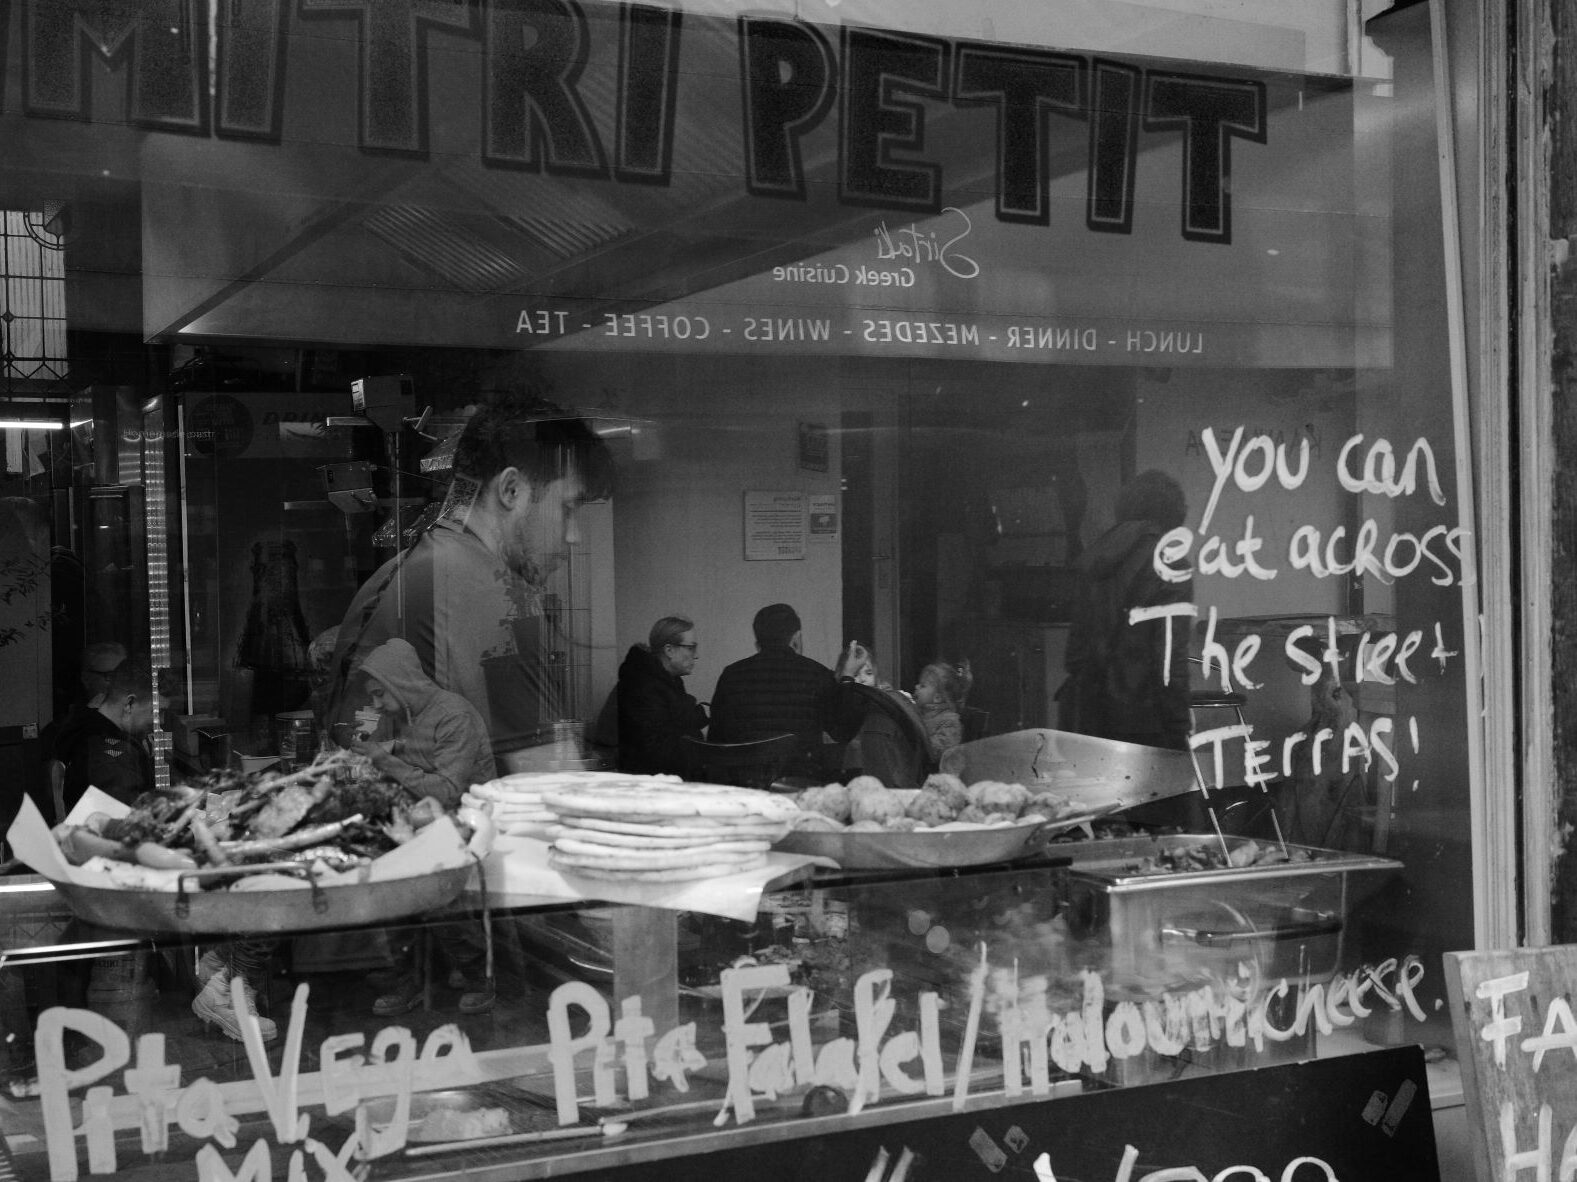 MITRI PETIT
Sirtaki
Greek Cuisine
LUNCH - DINNER - MEZEDES - WINES - COFFEE - TEA
you can
eat across
The street
TERRAS!
Pita Vega
Mix
Pita Falafel/Haloumi cheese.
FA